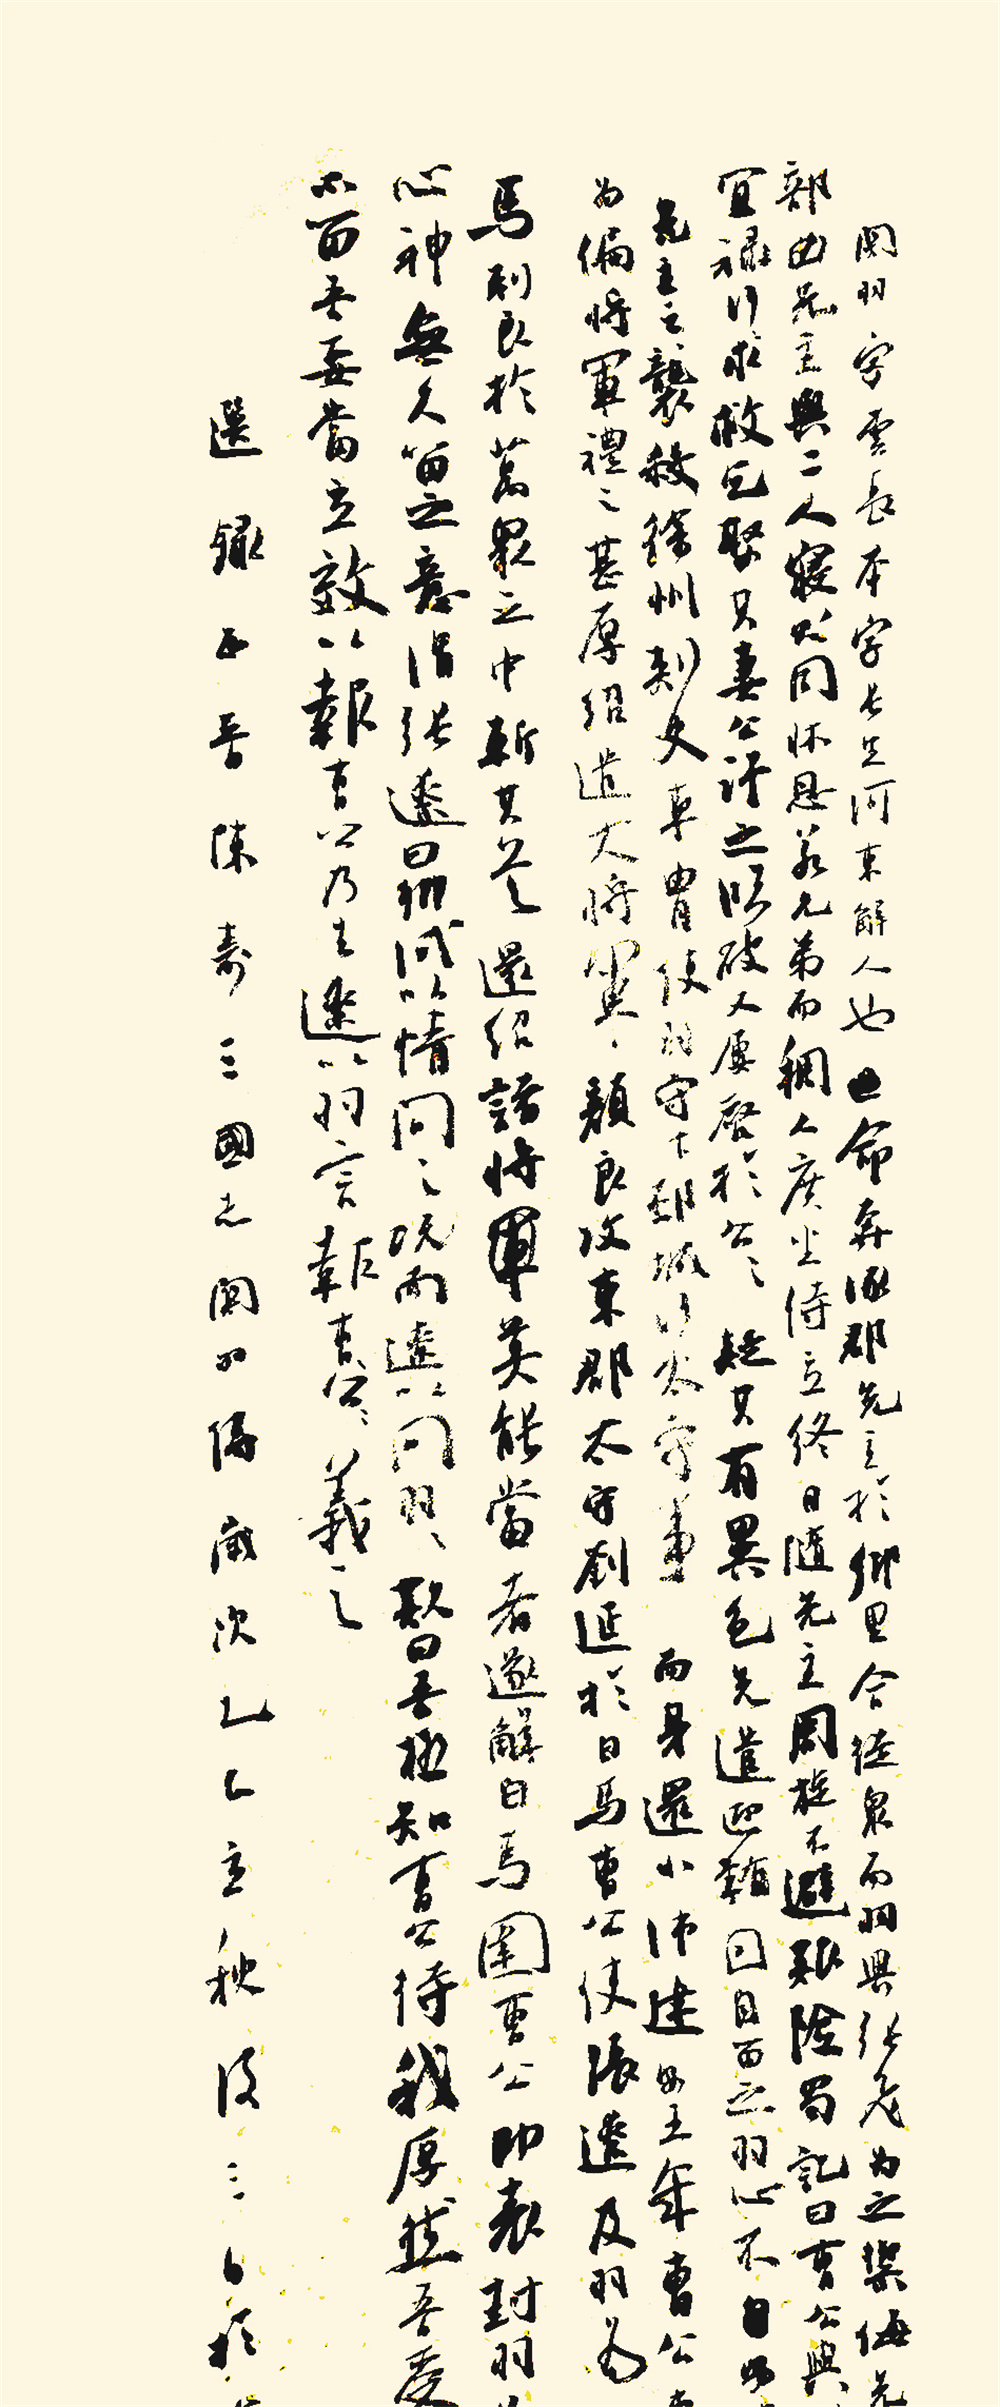 關羽字雲長本字長生河東解人也亡命奔涿郡先主於鄉里合徒衆而羽與張飛為之禦侮先
部曲先主與二人寢則同牀恩若兄弟而稠人廣坐侍立終日隨先主周旋不避艱險蜀記曰曹公與
宜祿行求救乞娶其妻公許之臨破又屢啓於公公疑其有異色先遣迎看因自留之羽心不自安
先主之襲殺徐州刺史車冑使羽守下邳城行太守事而身還小沛建安五年曹公
為偏將軍禮之甚厚紹遣大將軍顏良攻東郡太守劉延於白馬曹公使張遼及羽為
馬刺良於萬衆之中斬其首還紹諸將軍莫能當者遂解白馬圍曹公即表封羽
心神無久留之意謂張遼曰卿試以情問之既而遼以問羽羽歎曰吾極知曹公待我厚然吾受
不留吾要當立效以報曹公乃去遼以羽言報曹公公義之
選錄西晉陳壽三國志關羽傳歲次乙巳立秋後三日於